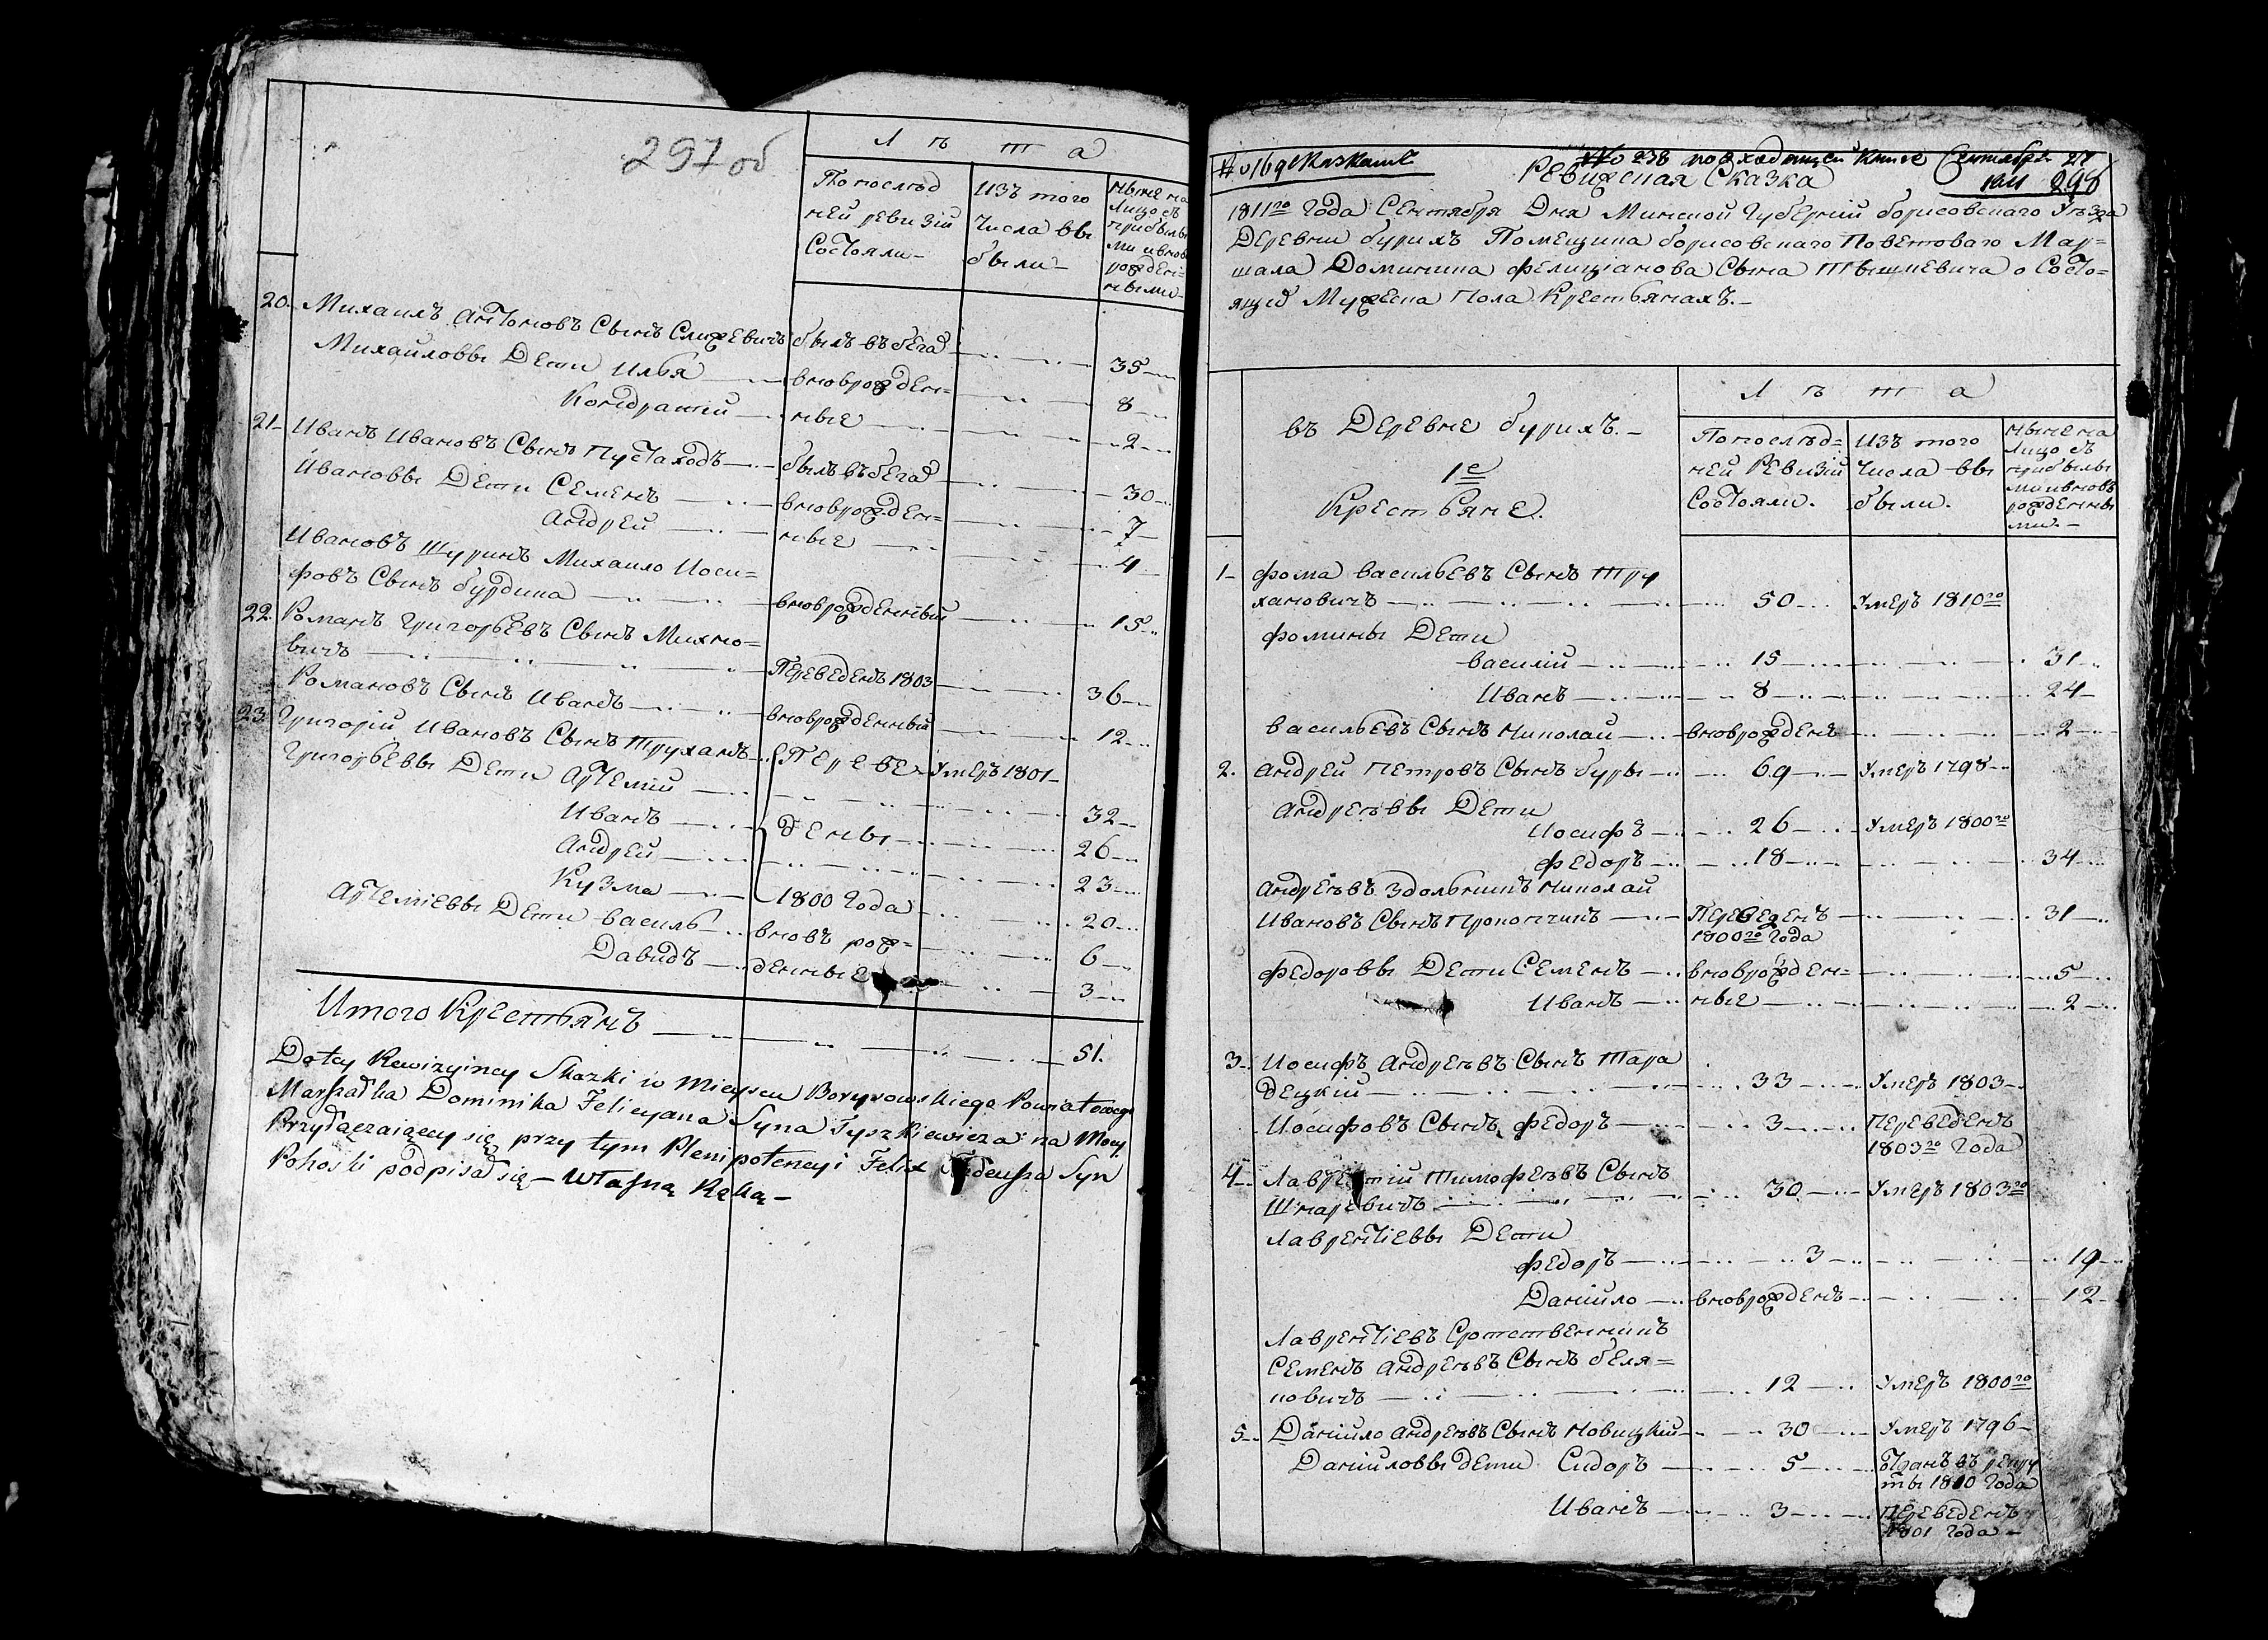 297 об
Л ѣ т а
По послѣд
ней ревизій
Состояли
Изъ того
Числа вы
были
Ныне на
Лицо съ
прибылы
ми и внов
рожден=
ными
20. Михаилъ Антоновъ Сынъ Слижевичъ былъ въ бега 35
Михайловы Дети Илья вновьрожден= 8
Кондратий ные 2
21 Иванъ Ивановъ Сынъ Пустаходъ былъ въ бега 30
Ивановы Дети Семенъ вновьрожден= 7
Андрей ные 4
Ивановъ Шуринъ Михаило Иоси=
фовъ Сынъ бурдина вноврожденный 15
22. Романъ Григорьевъ Сынъ Михно=
вичъ Переведенъ 1803 36
Романовъ Сынъ Иванъ вноврожденный 12
23 Григорій Ивановъ Сынъ Труханъ Переве Умеръ 1801
Григорьевы Дети Артемій 32
Иванъ дены 26
Андрей 23
Кузма 1800 Года 20
Артеміевы Дети василь вновь рож= 6
Давидъ денные 3
Итого Крестьянъ 51.
Do tey Rewizyiney Skazki w Mieyscu Borysowskiego Powiatowego
Marszałka Dominika Felicyana Syna Tyszkiewicza na Mocy
Przyłączaiącey się przy tym Plenipotencyi Felix Tadeusza Syn
Pohoski podpisał się – własną Ręką –
№ 169 Сказкамъ
№ 238 по входящей Книге Сентября 27
1811 298
Ревижская Сказка
1811го Года Сентября Дня Минской Губерній борисовскаго Уѣзда
Деревни бурихъ Помещика борисовскаго Поветоваго Мар=
шала Доминика фелиціанова Сына Тышкевича о Состо=
ящих Мужеска Пола Крестьянахъ.
Л ѣ т а
въ Деревне бурихъ.
1е
Крестьяне.
По послѣд=
ней Ревизій
Состояли.
Изъ того
Числа вы
были.
Ныне на
Лицо съ
прибылы
ми и вновь
рожденны
ми
1 фома васильевъ Сынъ Тру
хановичъ 50 Умеръ 1810го
фомины Дети
василій 15 31
Иванъ 8 24
васильевъ Сынъ Николай вноврожденъ 2
2. Андрей Петровъ Сынъ буры 69 Умеръ 1798
Андрѣевы Дети
Иосифъ 26 Умеръ 1800го
федоръ 18 34
Андрѣевъ Здольникъ Николай
Ивановъ Сынъ Прокопчикъ Переведенъ 31
1800го Года
федоровы Дети Семенъ вноврожден= 5
Иванъ ные 2
3 Иосифъ Андрѣевъ Сынъ Тара
децкій 33 Умеръ 1803
Иосифовъ Сынъ федоръ 3 Переведенъ
1803го Года
4 Лаврентій Тимофѣевъ Сынъ
Шкаревичъ 30 Умеръ 1803го
Лаврентіевы Дети
федоръ 3 19
Данійло вноврожденъ 12
Лаврентіевъ Сротственникъ
Семенъ Андрѣевъ Сынъ беля=
ковичъ 12 Умеръ 1800го
5 Данійло Андрѣевъ Сынъ Новицкій 30 Умеръ 1796
Данійловы дети Сидоръ 5 Отданъ въ рекру
ты 1810 Года
Иванъ 3 Переведенъ
1801 Года